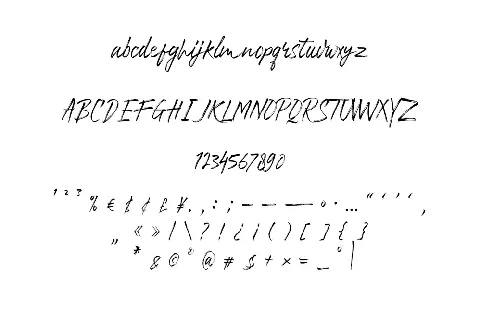 abcdefghijklmnopqrstuvwxyz
ABCDEFGHIJKLMNOPQRSTUVWXYZ
1234567890
¹ ² ³ % € $ ¢ £ ¥ . , : ; - – — ° · … “ ‘ ’ ‚
„ « » / \ ? ! ¿ ¡ ( ) [ ] { }
* & © ® @ # $ + × = _ ° |